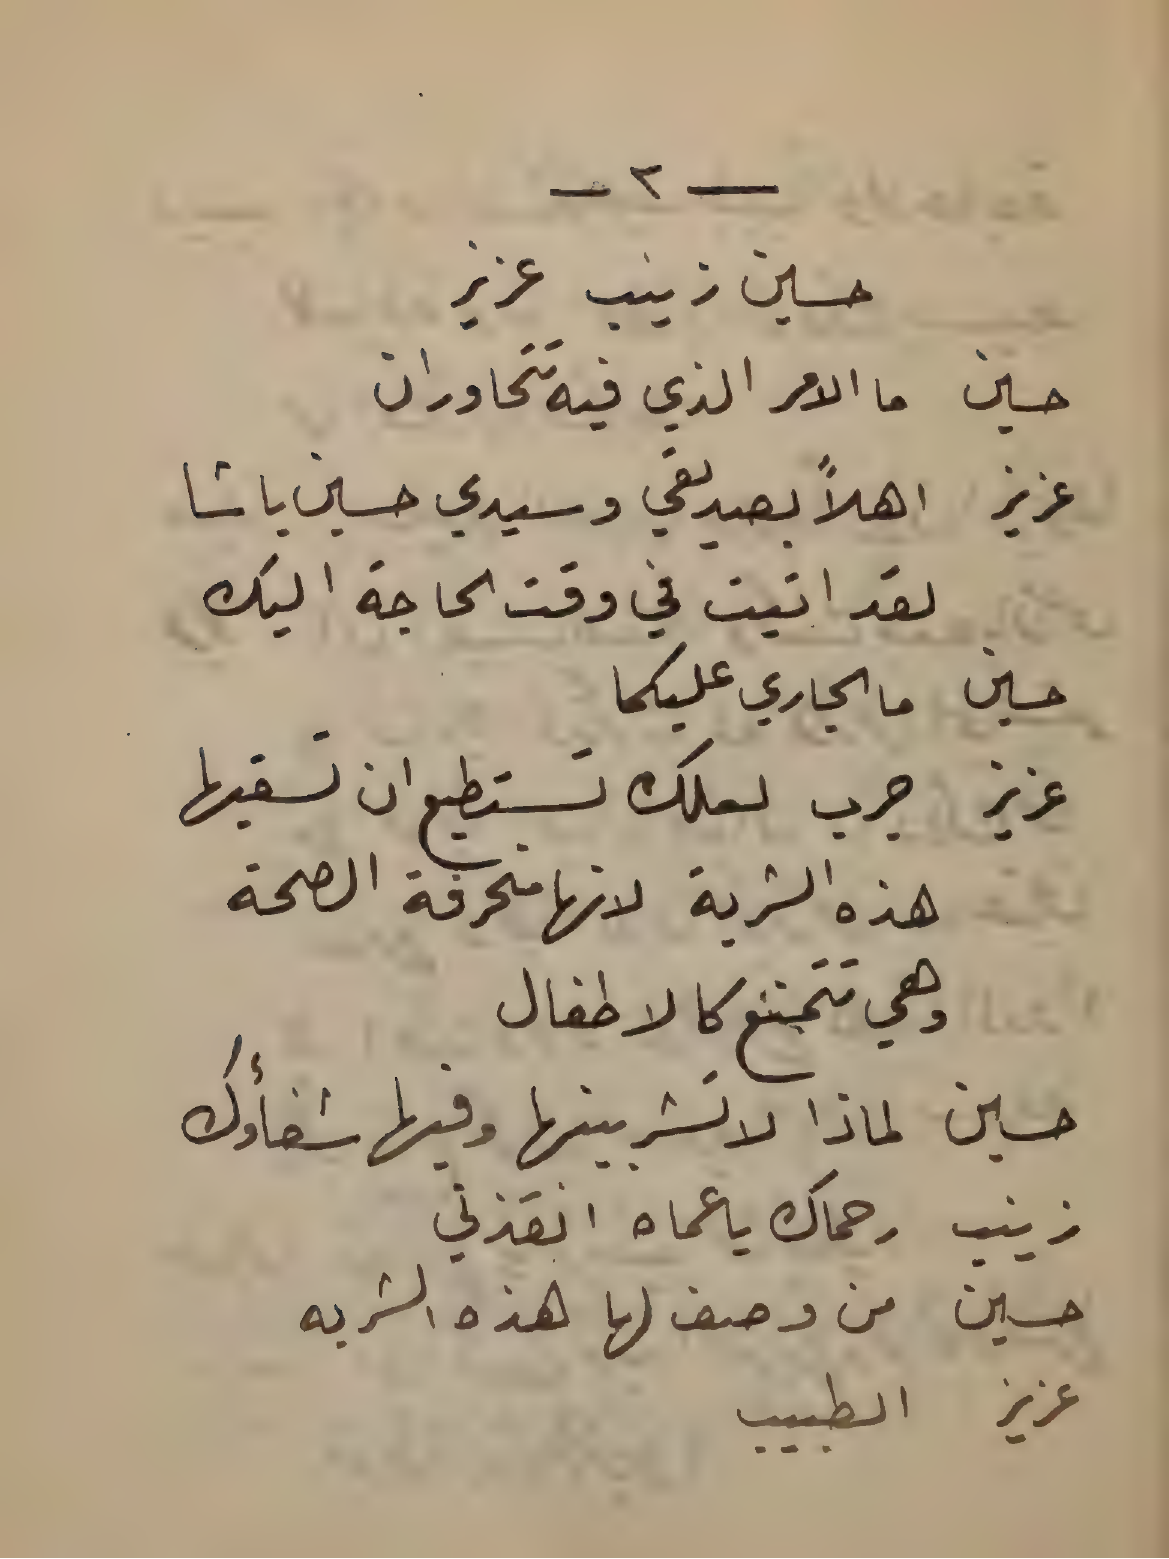 — ٢ —
حسين زينب عزيز
حسين ما الامر الذي فيه تتحاوران
عزيز اهلاً بصديقي وسيدي حسين باشا
لقد اتيت في وقت الحاجة اليك
حسين ما الجاري عليكما
عزيز جرب لعلك تستطيع ان تسقيها
هذه الشربة لانها منحرفة الصحة
وهي تتمنع كالاطفال
حسين لماذا لا تشربينها وفيها شفأوك
زينب رحماك ياعماه انقذني
حسين من وصف لها هذه الشربه
عزيز الطبيب